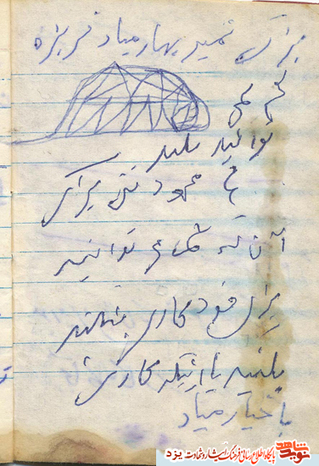 بزک نمیر بهار میاد خربزه
نمی
توانید بلند
محمود نقی برای
آن که نمی توانید
برای خود کاری بکنید
بلند یا اینکه کاری
با خیار میاد
نوید شاهد
پایگاه اطلاع رسانی فرهنگ ایثار و شهادت یزد